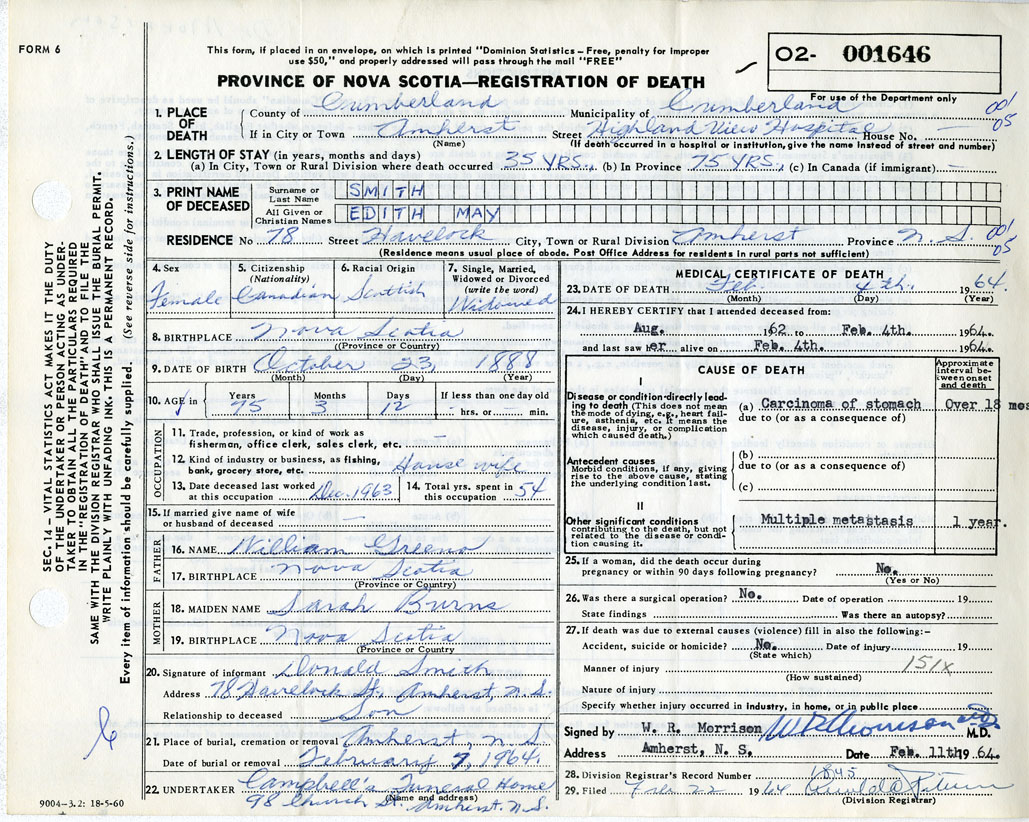 FORM 6
This form, if placed in an envelope, on which is printed "Dominion Statistics – Free, penalty for improper
use $50," and properly addressed will pass through the mail "FREE"
02- 001646
PROVINCE OF NOVA SCOTIA—REGISTRATION OF DEATH
For use of the Department only
1. PLACE OF DEATH
County of Cumberland Municipality of Cumberland 001
If in City or Town Amherst Street Highland View Hospital House No. — 05
(Name) (If death occurred in a hospital or institution, give the name instead of street and number)
2. LENGTH OF STAY (in years, months and days)
(a) In City, Town or Rural Division where death occurred 35 YRS. (b) In Province 75 YRS. (c) In Canada (if immigrant)
3. PRINT NAME OF DECEASED
Surname or Last Name SMITH
All Given or Christian Names EDITH MAY
RESIDENCE No 78 Street Havelock City, Town or Rural Division Amherst Province N.S. 001 05
(Residence means usual place of abode. Post Office Address for residents in rural parts not sufficient)
4. Sex
Female
5. Citizenship
(Nationality)
Canadian
6. Racial Origin
Scottish
7. Single, Married,
Widowed or Divorced
(write the word)
Widowed
8. BIRTHPLACE Nova Scotia
(Province or Country)
9. DATE OF BIRTH October 23, 1888
(Month) (Day) (Year)
10. AGE in Years 75 Months 3 Days 12 If less than one day old
hrs. or min.
OCCUPATION
11. Trade, profession, or kind of work as
fisherman, office clerk, sales clerk, etc. —
12. Kind of industry or business, as fishing,
bank, grocery store, etc. House wife
13. Date deceased last worked
at this occupation Dec. 1963
14. Total yrs. spent in
this occupation 54
15. If married give name of wife
or husband of deceased —
FATHER
16. NAME William Greeno
17. BIRTHPLACE Nova Scotia
(Province or Country)
MOTHER
18. MAIDEN NAME Sarah Burns
19. BIRTHPLACE Nova Scotia
(Province or Country)
20. Signature of informant Donald Smith
Address 78 Havelock St. Amherst, N.S.
Relationship to deceased Son
21. Place of burial, cremation or removal Amherst N S
Date of burial or removal February 7, 1964
22. UNDERTAKER Campbell's Funeral Home
(Name and address)
98 Church St. Amherst. N.S.
9004–3.2: 18-5-60
MEDICAL CERTIFICATE OF DEATH
23. DATE OF DEATH Feb. 4th. 1964.
(Month) (Day) (Year)
24. I HEREBY CERTIFY that I attended deceased from:
Aug. 1962 to Feb. 4th. 1964.
and last saw her alive on Feb. 4th. 1964.
CAUSE OF DEATH
Approximate interval between onset and death
I
Disease or condition directly leading to death (This does not mean the mode of dying, e.g., heart failure, asthenia, etc. It means the disease, injury, or complication which caused death.)
(a) Carcinoma of stomach Over 18 mos
due to (or as a consequence of)
Antecedent causes
Morbid conditions, if any, giving rise to the above cause, stating the underlying condition last.
(b)
due to (or as a consequence of)
(c)
II
Other significant conditions
contributing to the death, but not related to the disease or condition causing it.
Multiple metastasis 1 year.
25. If a woman, did the death occur during
pregnancy or within 90 days following pregnancy? No.
(Yes or No)
26. Was there a surgical operation? No. Date of operation 19
State findings Was there an autopsy?
27. If death was due to external causes (violence) fill in also the following:–
Accident, suicide or homicide? No. Date of injury 19
(State which)
Manner of injury 151X
(How sustained)
Nature of injury
Specify whether injury occurred in industry, in home, or in public place
Signed by W. R. Morrison M.D.
Address Amherst, N. S. Date Feb. 11th 1964.
28. Division Registrar's Record Number 1845
29. Filed Feb 22 1964
(Division Registrar)
SEC. 14 – VITAL STATISTICS ACT MAKES IT THE DUTY
OF THE UNDERTAKER OR PERSON ACTING AS UNDER-
TAKER TO OBTAIN ALL THE PARTICULARS REQUIRED
IN THE "REGISTRATION OF DEATH" AND TO FILE THE
SAME WITH THE DIVISION REGISTRAR WHO SHALL ISSUE THE BURIAL PERMIT.
WRITE PLAINLY WITH UNFADING INK. THIS IS A PERMANENT RECORD.
Every item of information should be carefully supplied. (See reverse side for instructions.)